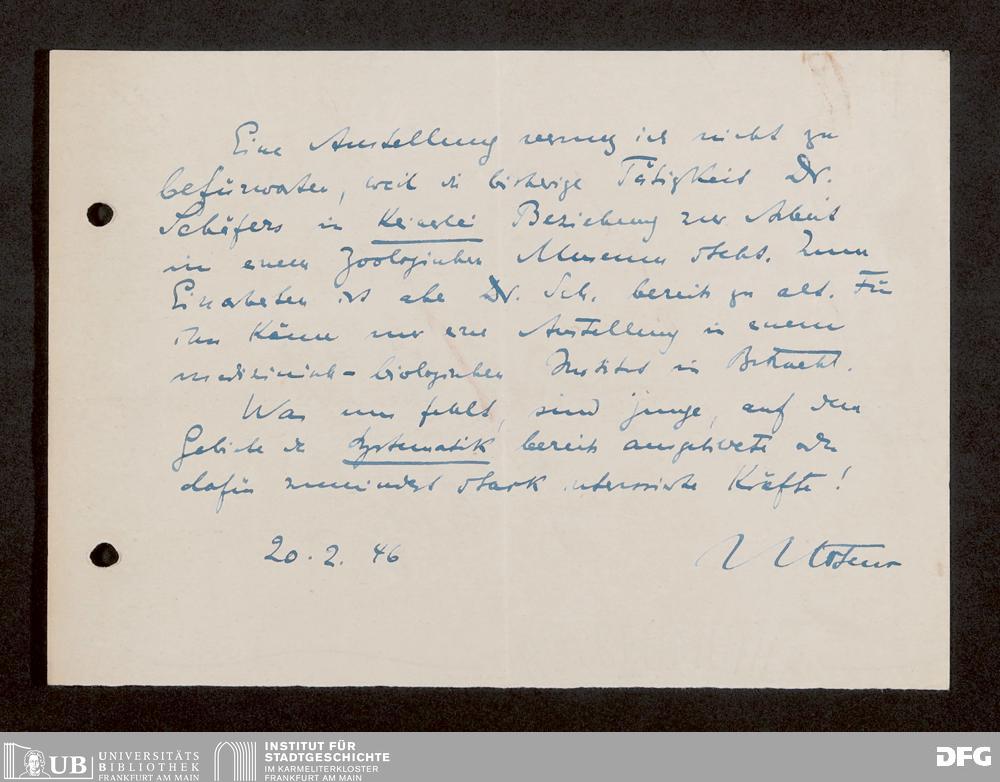 Eine Anstellung vermag ich nicht zu
befürworten, weil die bisherige Tätigkeit Dr.
Schäfers in keinerlei Beziehung zur Arbeit
in einem Zoologischen Museum steht. Zum
Einarbeiten ist aber Dr. Sch. bereits zu alt. Für
ihn käme nur eine Anstellung in einem
medizinisch-biologischen Institut in Betracht.
Was uns fehlt, sind junge, auf dem
Gebiete der Systematik bereits ausgebildete oder
dafür zumindest stark interessierte Kräfte!
20. 2. 46
UB UNIVERSITÄTS
BIBLIOTHEK
FRANKFURT AM MAIN
INSTITUT FÜR
STADTGESCHICHTE
IM KARMELITERKLOSTER
FRANKFURT AM MAIN
DFG